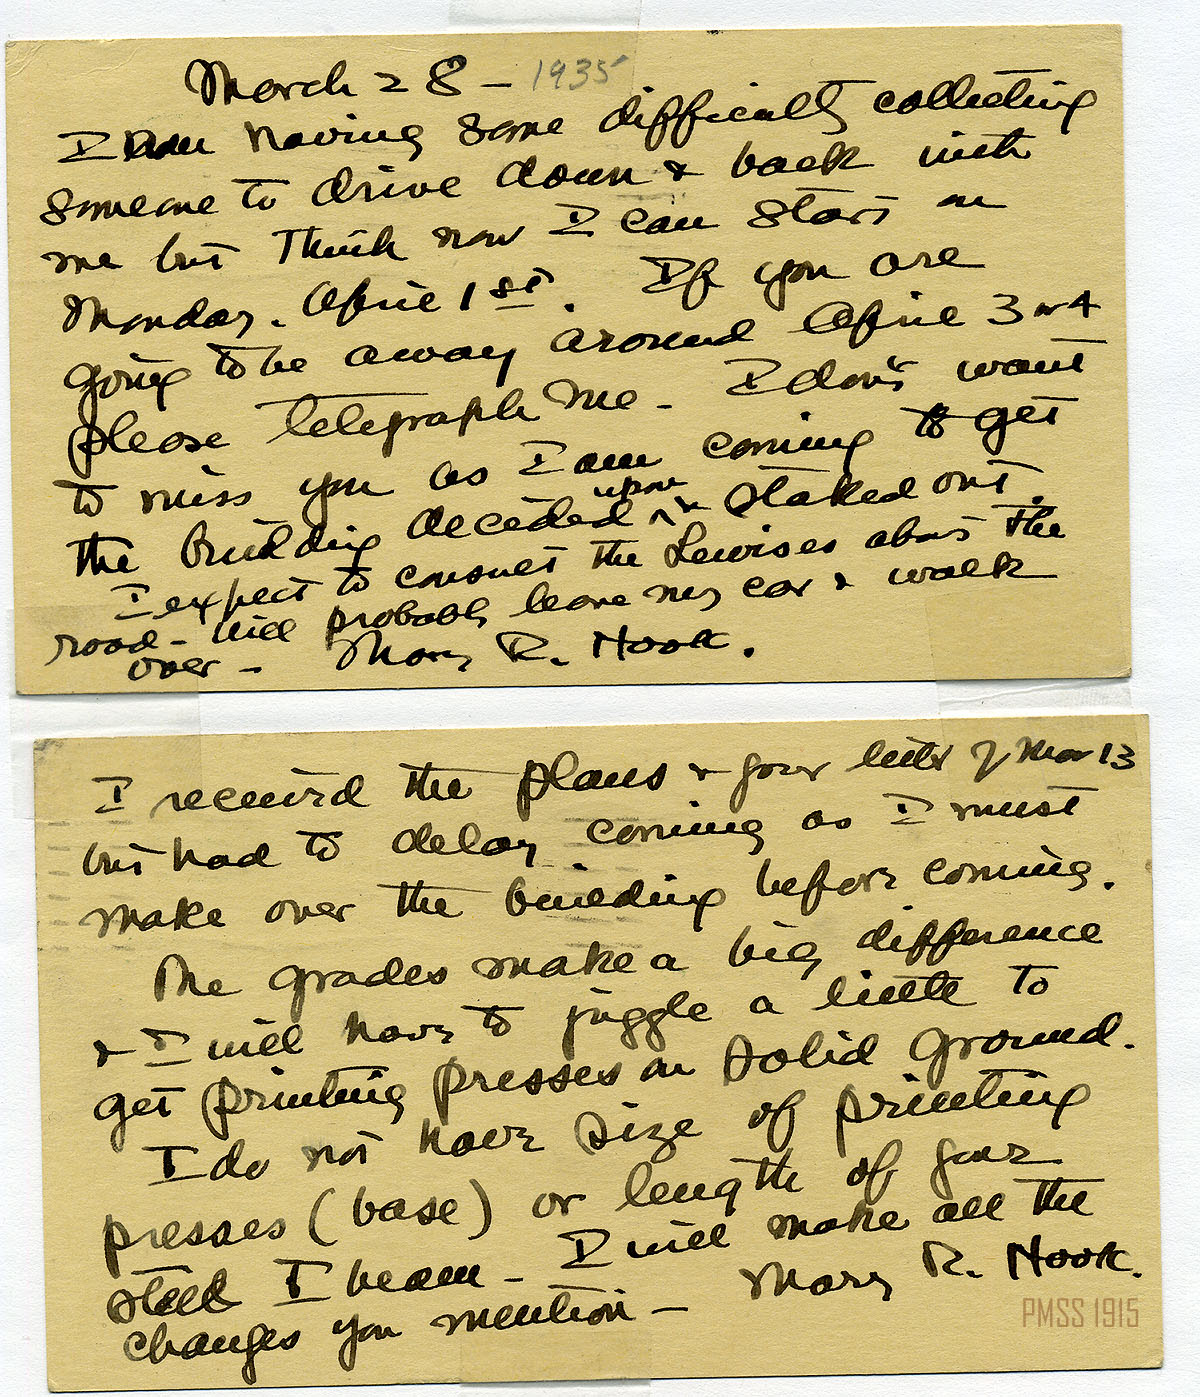 March 28 - 1935
I am having some difficulty collecting
someone to drive down & back with
me but think now I can start on
Monday. April 1st. If you are
going to be away around April 3 or 4
please telegraph me - I don't want
to miss you as I am coming to get
the building decided upon & staked out.
I expect to consult the Lewises about the
road - will probably leave my car & walk
over - Mary R. Hook.
I received the plans & your letter of Mar 13
but had to delay coming as I must
make over the building before coming.
The grades make a big difference
& I will have to juggle a little to
get printing presses on solid ground.
I do not have size of printing
presses (base) or length of your
steel I beam - I will make all the
changes you mention - Mary R. Hook.
PMSS 1915